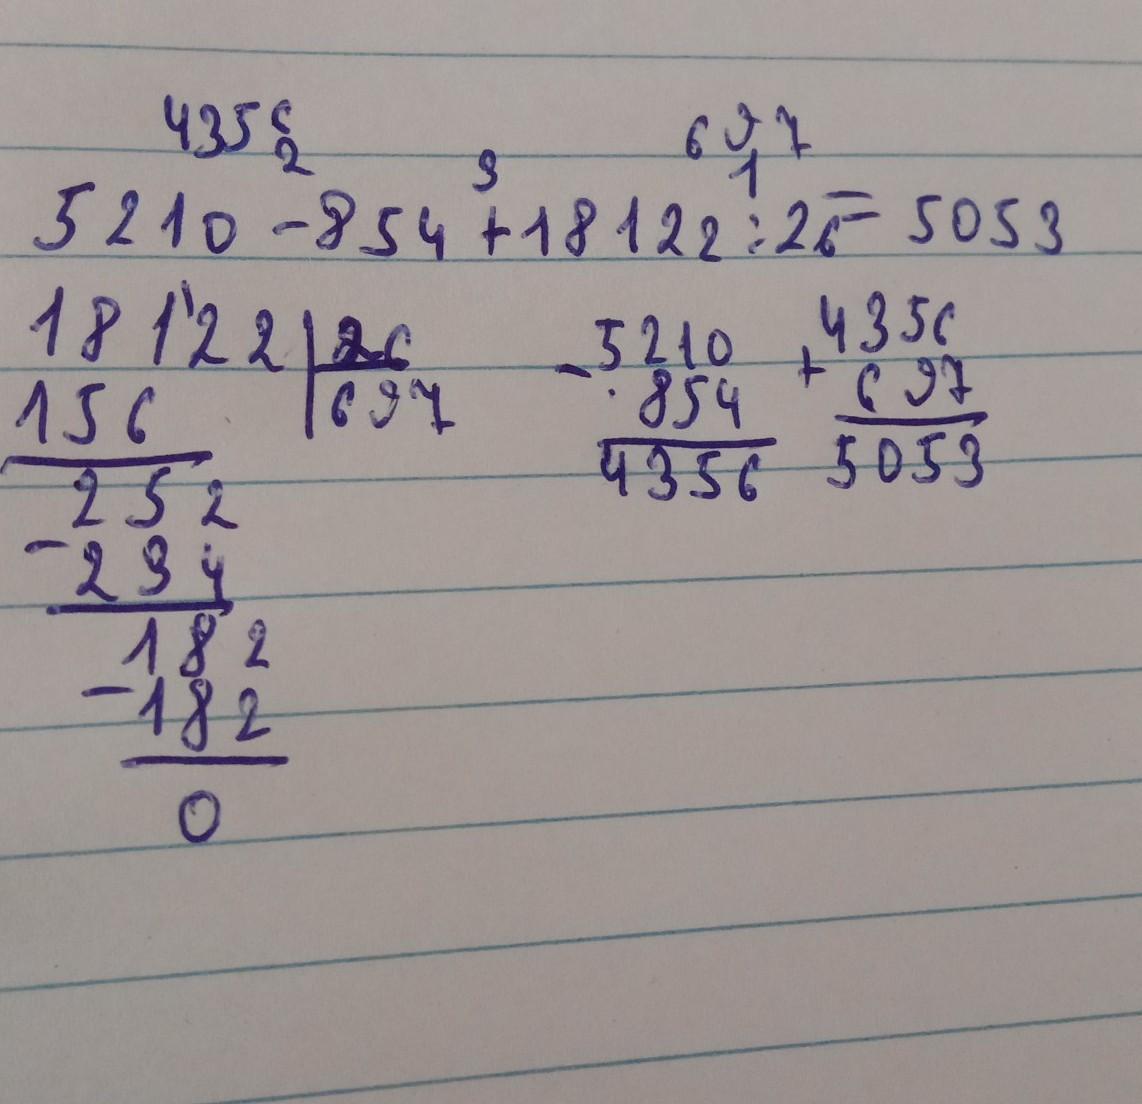 4356 697
2 3 1
5210 - 854 + 18122 : 26 = 5053
18122 | 26 - 5210 + 4356
156 697 854 697
252 4356 5053
- 234
182
- 182
0